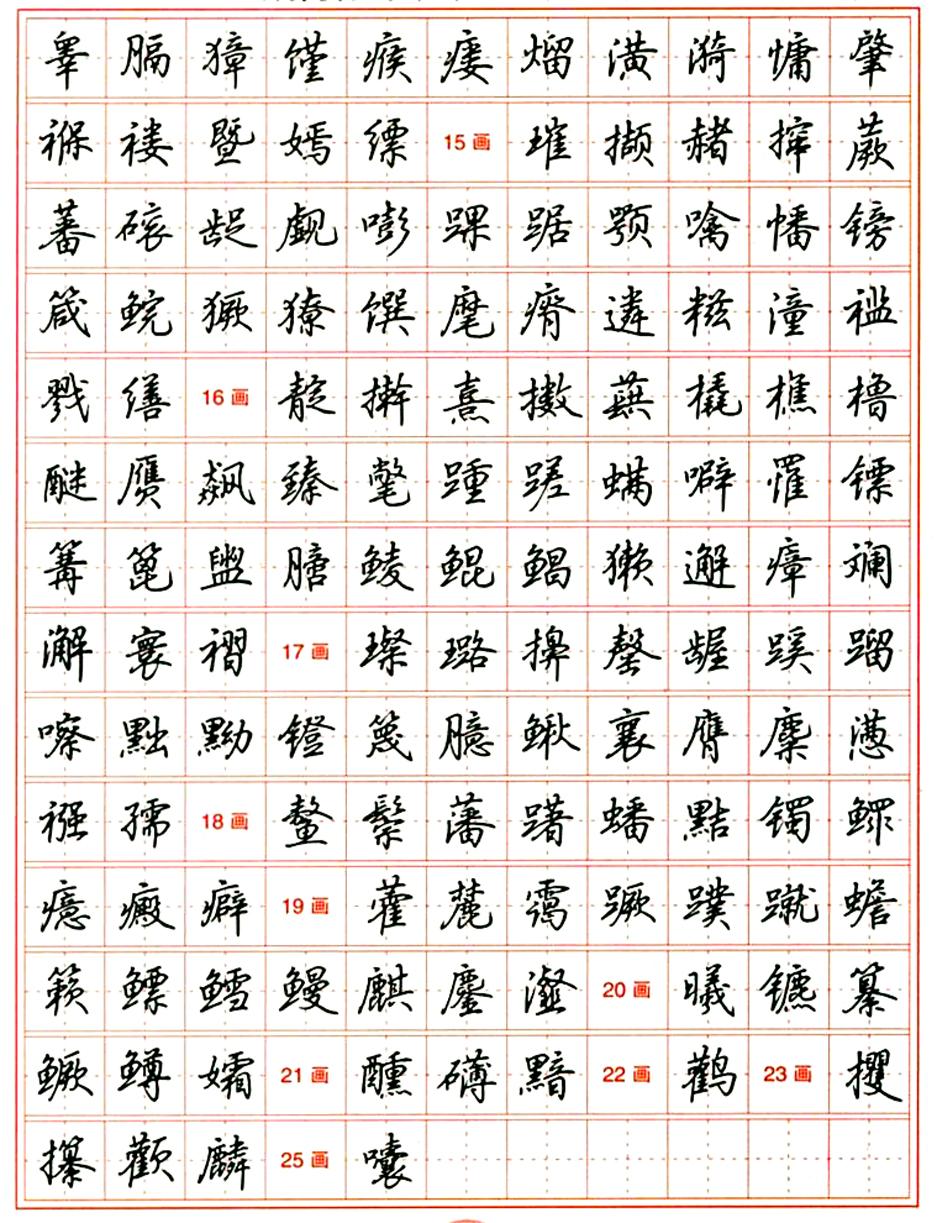 睾 膈 獐 馑 瘊 瘘 熘 潢 漪 慵 肇
褓 褛 暨 嫣 缥 15画 璀 撷 赭 撺 蕨
蕃 磙 龊 觑 嘭 踝 踞 颚 噙 幡 镑
箴 鲩 獗 獠 馔 麾 瘠 遴 糍 潼 褴
戮 缮 16画 靛 擀 熹 擞 蕻 橇 樵 橹
醚 赝 飙 臻 氅 踵 蹉 蟒 噼 罹 镖
篝 篦 盥 膪 鲮 鲲 鲳 獭 邂 瘴 斓
澥 寰 褶 17画 璨 璐 擤 罄 龌 蹊 蹓
嚓 黜 黝 镫 篾 臆 鳅 襄 膺 糜 懑
襁 孺 18画 鳌 鬃 藩 躇 蟠 黠 镯 鳏
癔 癜 癖 19画 藿 麓 霭 蹶 蹼 蹴 蟾
籁 鳔 鳕 鳗 麒 鏖 瀣 20画 曦 镳 纂
鳜 鳟 孀 21画 醺 礴 黯 22画 鹳 23画 攫
攥 颧 麟 25画 囔